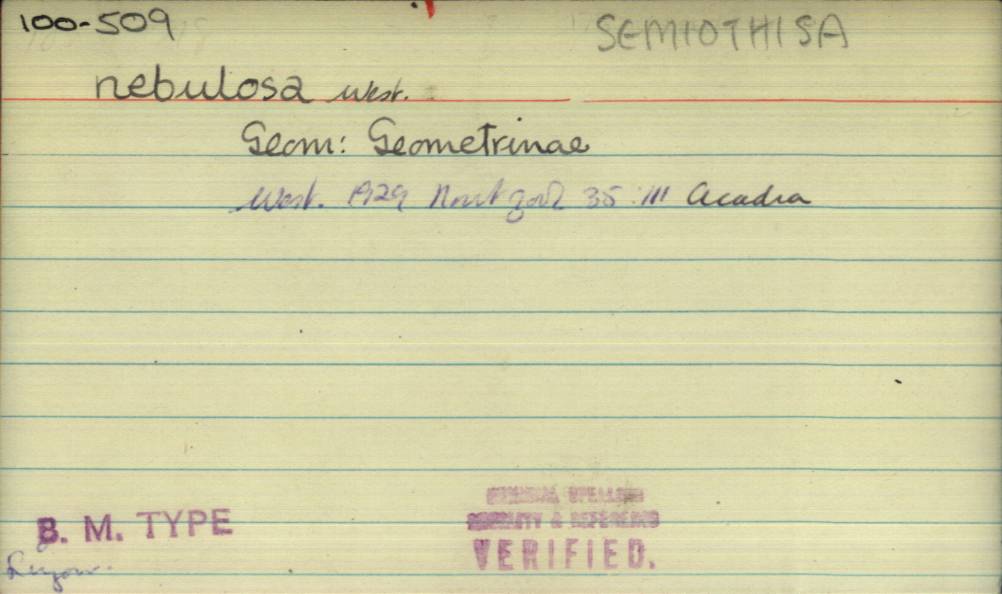 100-509
SEMIOTHISA
nebulosa West.
Geom: Geometrinae
West. 1929 Novit zool 35:111 Acadra
B. M. TYPE
Luzon.
ORIGINAL SPELLING
LOCALITY & REFERENCE
VERIFIED.